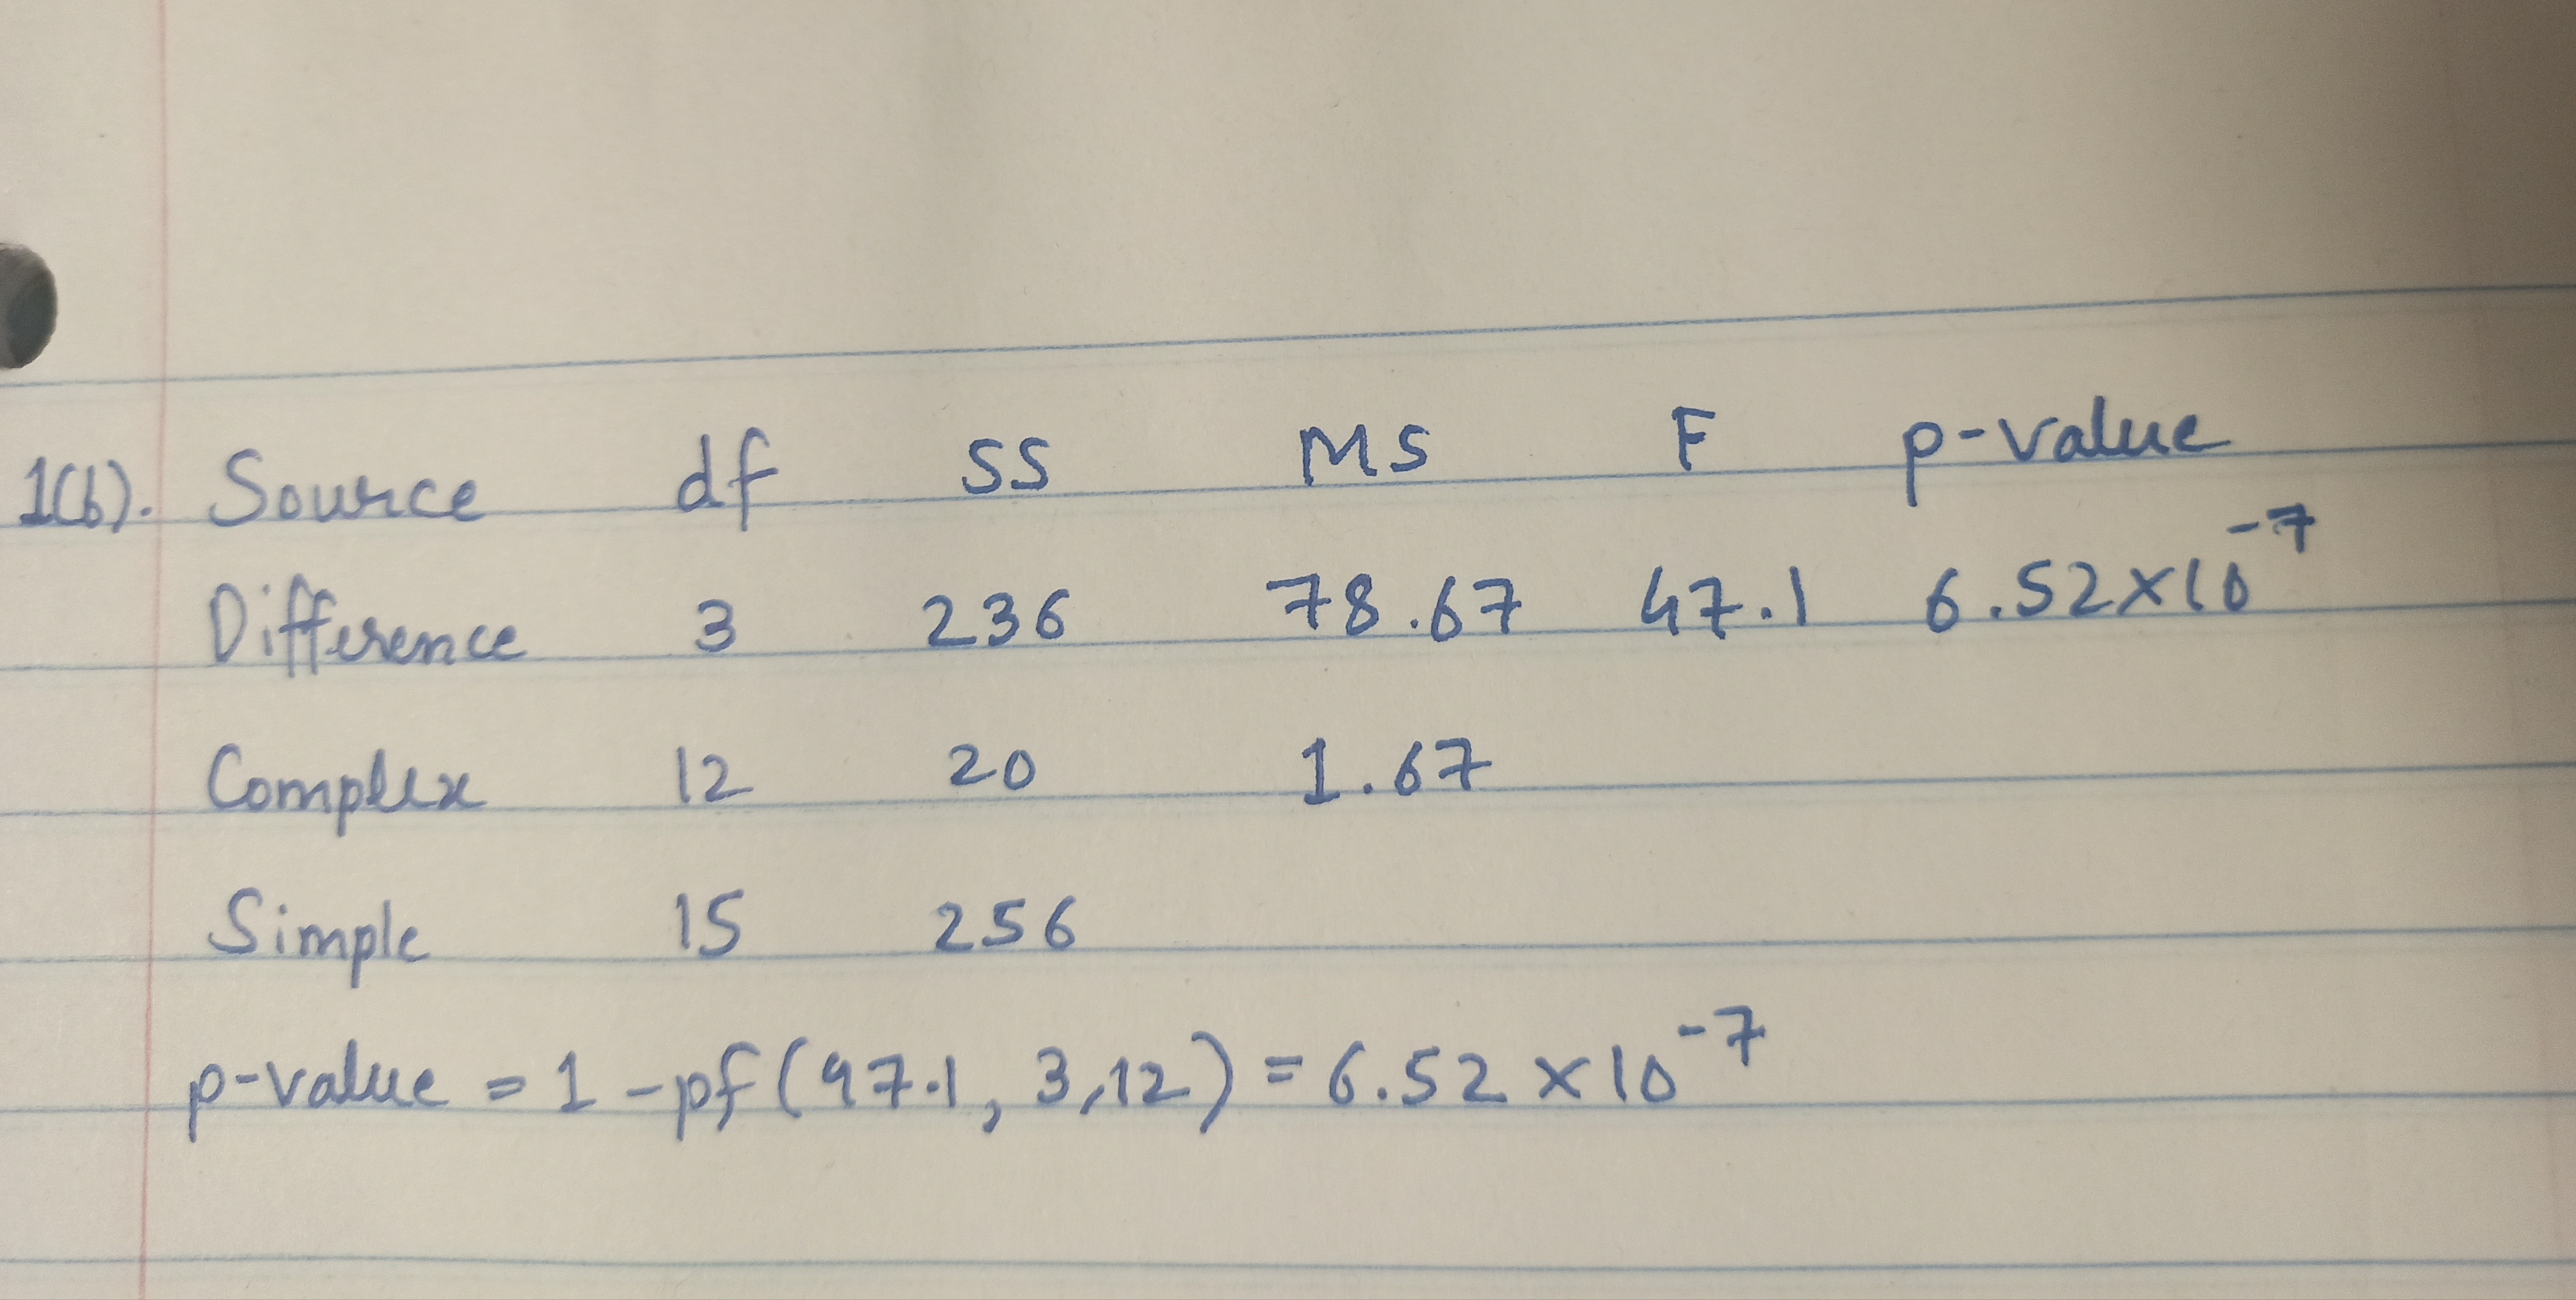 1(b). Source df SS MS F p-value
Difference 3 236 78.67 47.1 6.52×10⁻⁷
Complex 12 20 1.67
Simple 15 256
p-value = 1 - pf(47.1, 3,12) = 6.52 × 10⁻⁷